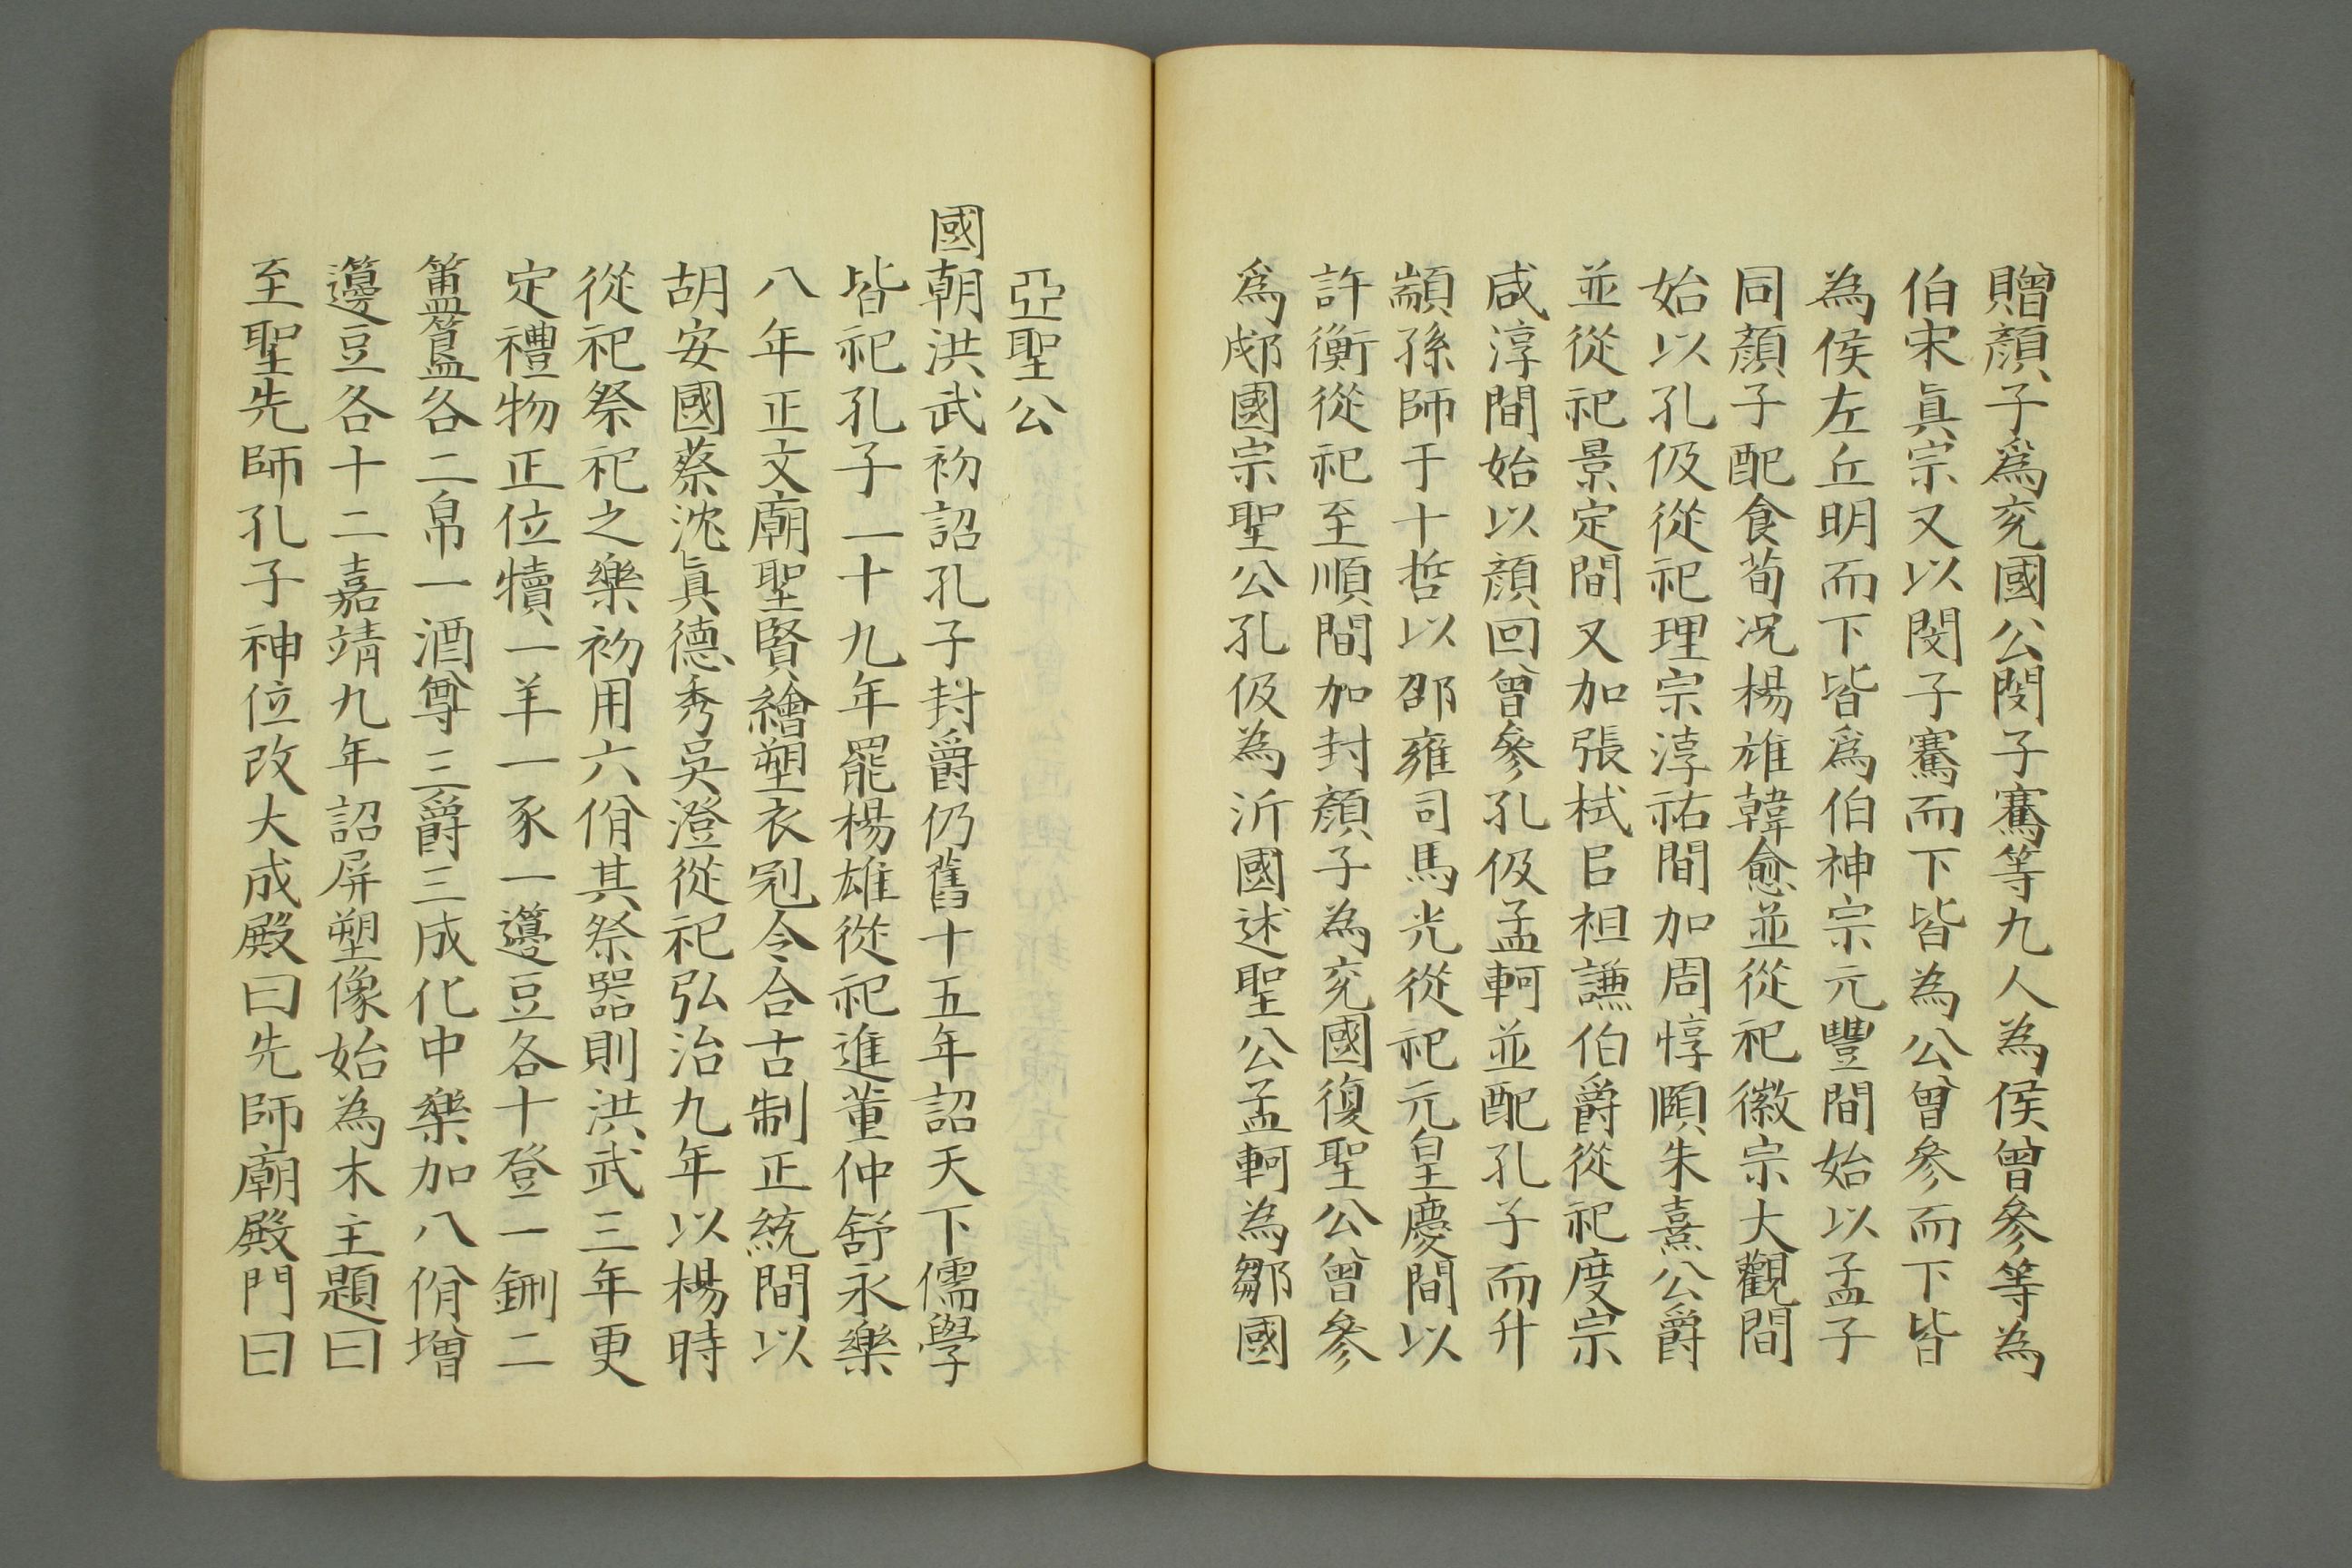 贈顏子爲兖國公閔子騫等九人為侯曾參等為
伯宋眞宗又以閔子騫而下皆為公曾參而下皆
為侯左丘明而下皆爲伯神宗元豐間始以孟子
同顏子配食荀况楊雄韓愈並從祀徽宗大觀間
始以孔伋從祀理宗淳祐間加周惇頥朱熹公爵
並從祀景定間又加張栻吕祖謙伯爵從祀度宗
咸淳間始以顏回曾參孔伋孟軻並配孔子而升
顓孫師于十哲以邵雍司馬光從祀元皇慶間以
許衡從祀至順間加封顏子為兖國復聖公曾參
爲郕國宗聖公孔伋為沂國述聖公孟軻為鄒國
亞聖公
國朝洪武初詔孔子封爵仍舊十五年詔天下儒學
皆祀孔子一十九年罷楊雄從祀進董仲舒永樂
八年正文廟聖賢繪塑衣冠令合古制正統間以
胡安國蔡沈眞德秀吳澄從祀弘治九年以楊時
從祀祭祀之樂初用六佾其祭器則洪武三年更
定禮物正位犢一羊一豕一籩豆各十登一鉶二
簠簋各二帛一酒尊三爵三成化中樂加八佾增
籩豆各十二嘉靖九年詔屏塑像始為木主題曰
至聖先師孔子神位改大成殿曰先師廟殿門曰